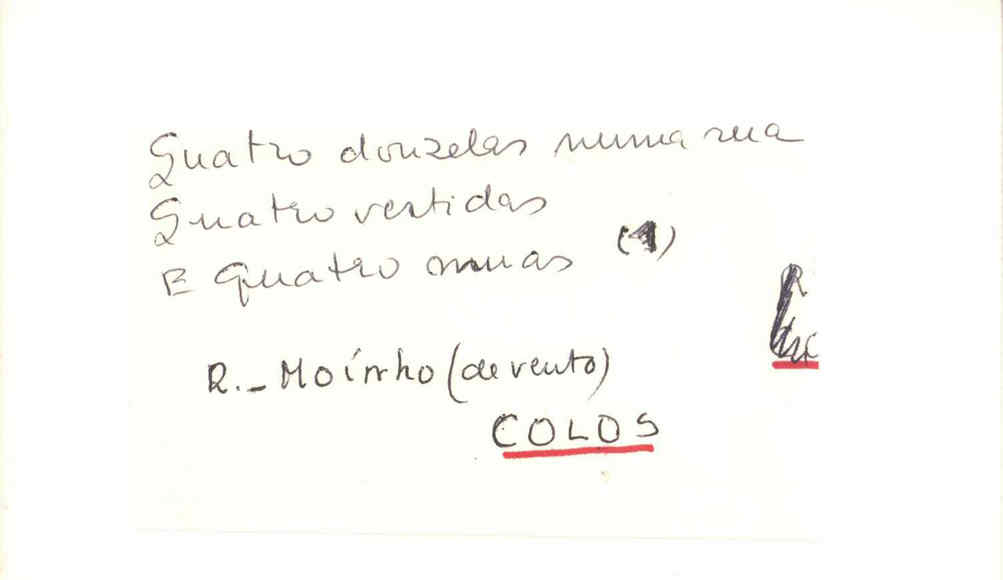 Quatro donzelas numa rua
Quatro vestidas
E quatro nuas (1)
R. - Moínho (de vento)
COLOS